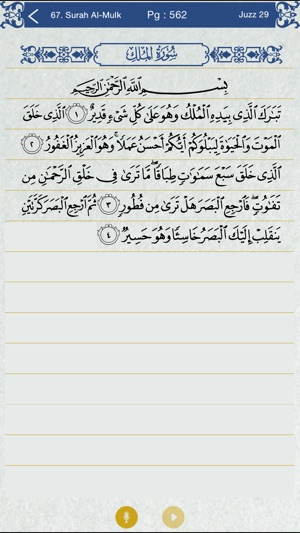 67. Surah Al-Mulk Pg : 562 Juzz 29
سُورَةُ المُلْكِ
بِسْمِ اللَّهِ الرَّحْمَٰنِ الرَّحِيمِ
تَبَٰرَكَ ٱلَّذِى بِيَدِهِ ٱلْمُلْكُ وَهُوَ عَلَىٰ كُلِّ شَىْءٍ قَدِيرٌ ١ ٱلَّذِى خَلَقَ
ٱلْمَوْتَ وَٱلْحَيَوٰةَ لِيَبْلُوَكُمْ أَيُّكُمْ أَحْسَنُ عَمَلًا ۚ وَهُوَ ٱلْعَزِيزُ ٱلْغَفُورُ ٢
ٱلَّذِى خَلَقَ سَبْعَ سَمَٰوَٰتٍ طِبَاقًا ۖ مَّا تَرَىٰ فِى خَلْقِ ٱلرَّحْمَٰنِ مِن
تَفَٰوُتٍ ۖ فَٱرْجِعِ ٱلْبَصَرَ هَلْ تَرَىٰ مِن فُطُورٍ ٣ ثُمَّ ٱرْجِعِ ٱلْبَصَرَ كَرَّتَيْنِ
يَنقَلِبْ إِلَيْكَ ٱلْبَصَرُ خَاسِئًا وَهُوَ حَسِيرٌ ٤